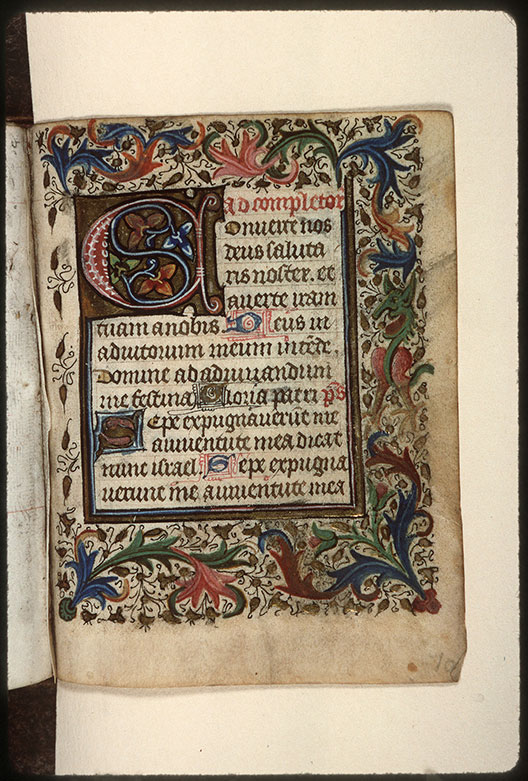 Ad completor
Conuerte nos
deus saluta
ris noster. et
auerte iram
tuam a nobis. Deus in
adiutorium meum intēde.
Domine ad adiuuandum
me festina. Gloria patri ps
Sepe expugnauerūt me
a iuuentute mea dicat
nunc israel. Sepe expugna
uerunt me a iuuentute mea